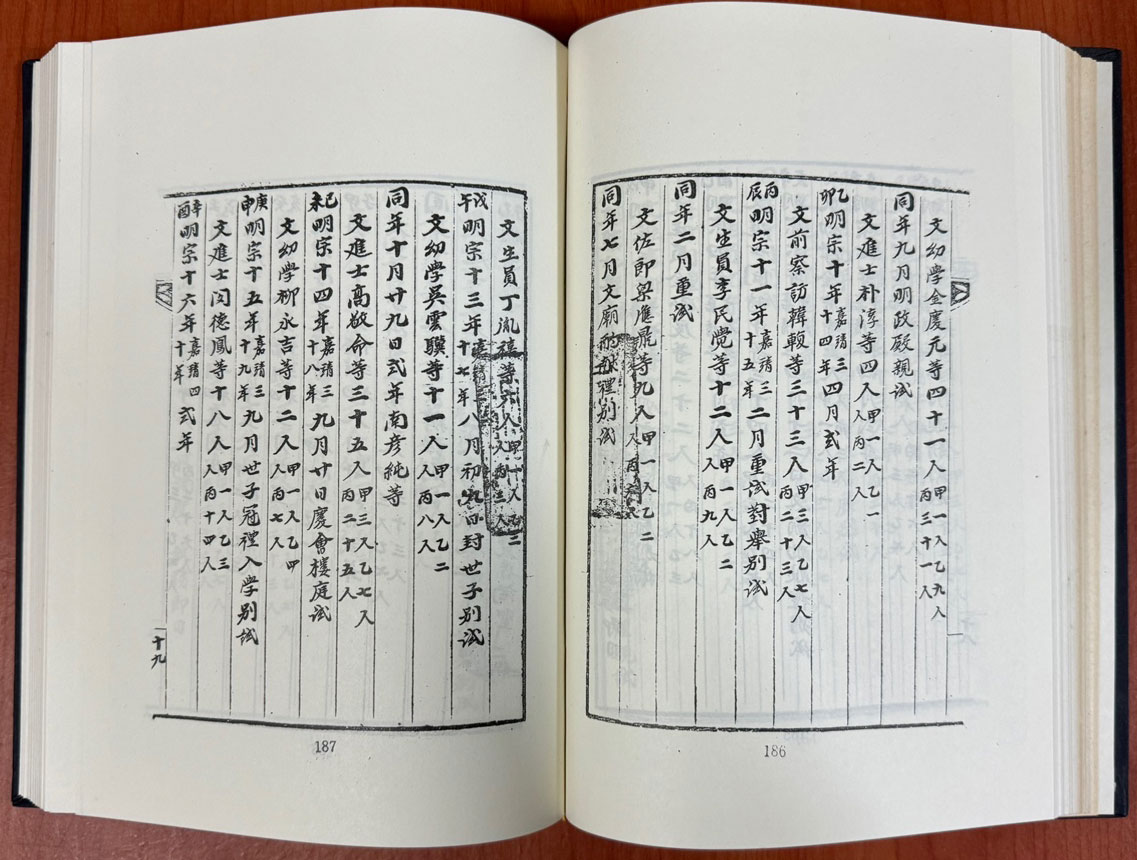 文幼學金慶元等四十一人甲一人乙九人丙三十一人
同年九月明政殿親試
文進士朴淳等四人甲一人乙一人丙二人
乙卯明宗十年嘉靖三十四年四月弍年
文前察訪韓輹等三十三人甲三人乙七人丙二十三人
丙辰明宗十一年嘉靖三十五年二月重試對舉別試
文生員李民覺等十二人甲一人乙二人丙九人
同年二月重試
文佐郎梁應鼎等九人甲一人乙二人丙六人
同年七月文廟酌獻禮別試
186
文生員丁胤禧等六人甲一人乙二人丙三人
戊午明宗十三年嘉靖三十七年八月初九日封世子別試
文幼學吳雲驥等十一人甲一人乙二人丙八人
同年十月廿九日弍年南彥純等
文進士高敬命等三十五人甲三人乙七人丙二十五人
己未明宗十四年嘉靖三十八年九月廿日慶會樓庭試
文幼學柳永吉等十二人甲一人乙四人丙七人
庚申明宗十五年嘉靖三十九年九月世子冠禮入學別試
文進士閔德鳳等十八人甲一人乙三人丙十四人
辛酉明宗十六年嘉靖四十年弍年
十九
187